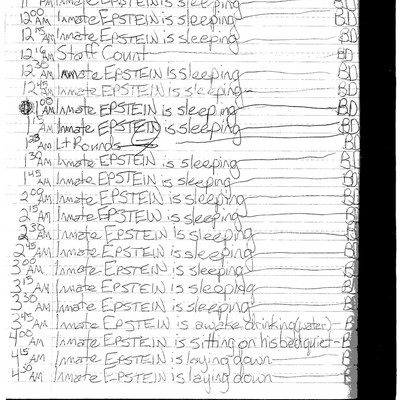 11 PM Inmate EPSTEIN is sleeping BD
12 00 AM Inmate EPSTEIN is sleeping BD
12 15 AM Inmate EPSTEIN is sleeping BD
12 AM Staff Count BD
12 30 AM Inmate EPSTEIN Is sleeping BD
12 45 AM Inmate EPSTEIN is sleeping BD
1 00 AM Inmate EPSTEIN is sleeping BD
1 15 AM Inmate EPSTEIN is sleeping BD
1 AM Lt Rounds BD
1 30 AM Inmate EPSTEIN is sleeping BD
1 45 AM Inmate EPSTEIN is sleeping BD
2 00 AM Inmate EPSTEIN is sleeping BD
2 15 AM Inmate EPSTEIN is sleeping BD
2 30 AM Inmate EPSTEIN is sleeping BD
2 45 AM Inmate EPSTEIN is sleeping BD
3 00 AM Inmate EPSTEIN is sleeping BD
3 15 AM Inmate EPSTEIN is sleeping BD
3 30 AM Inmate EPSTEIN is sleeping B
3 45 AM Inmate EPSTEIN is awake drinking (water) B
4 00 AM Inmate EPSTEIN is sitting on his bed quiet B
4 15 AM Inmate EPSTEIN is laying down B
4 30 AM Inmate EPSTEIN is laying down B